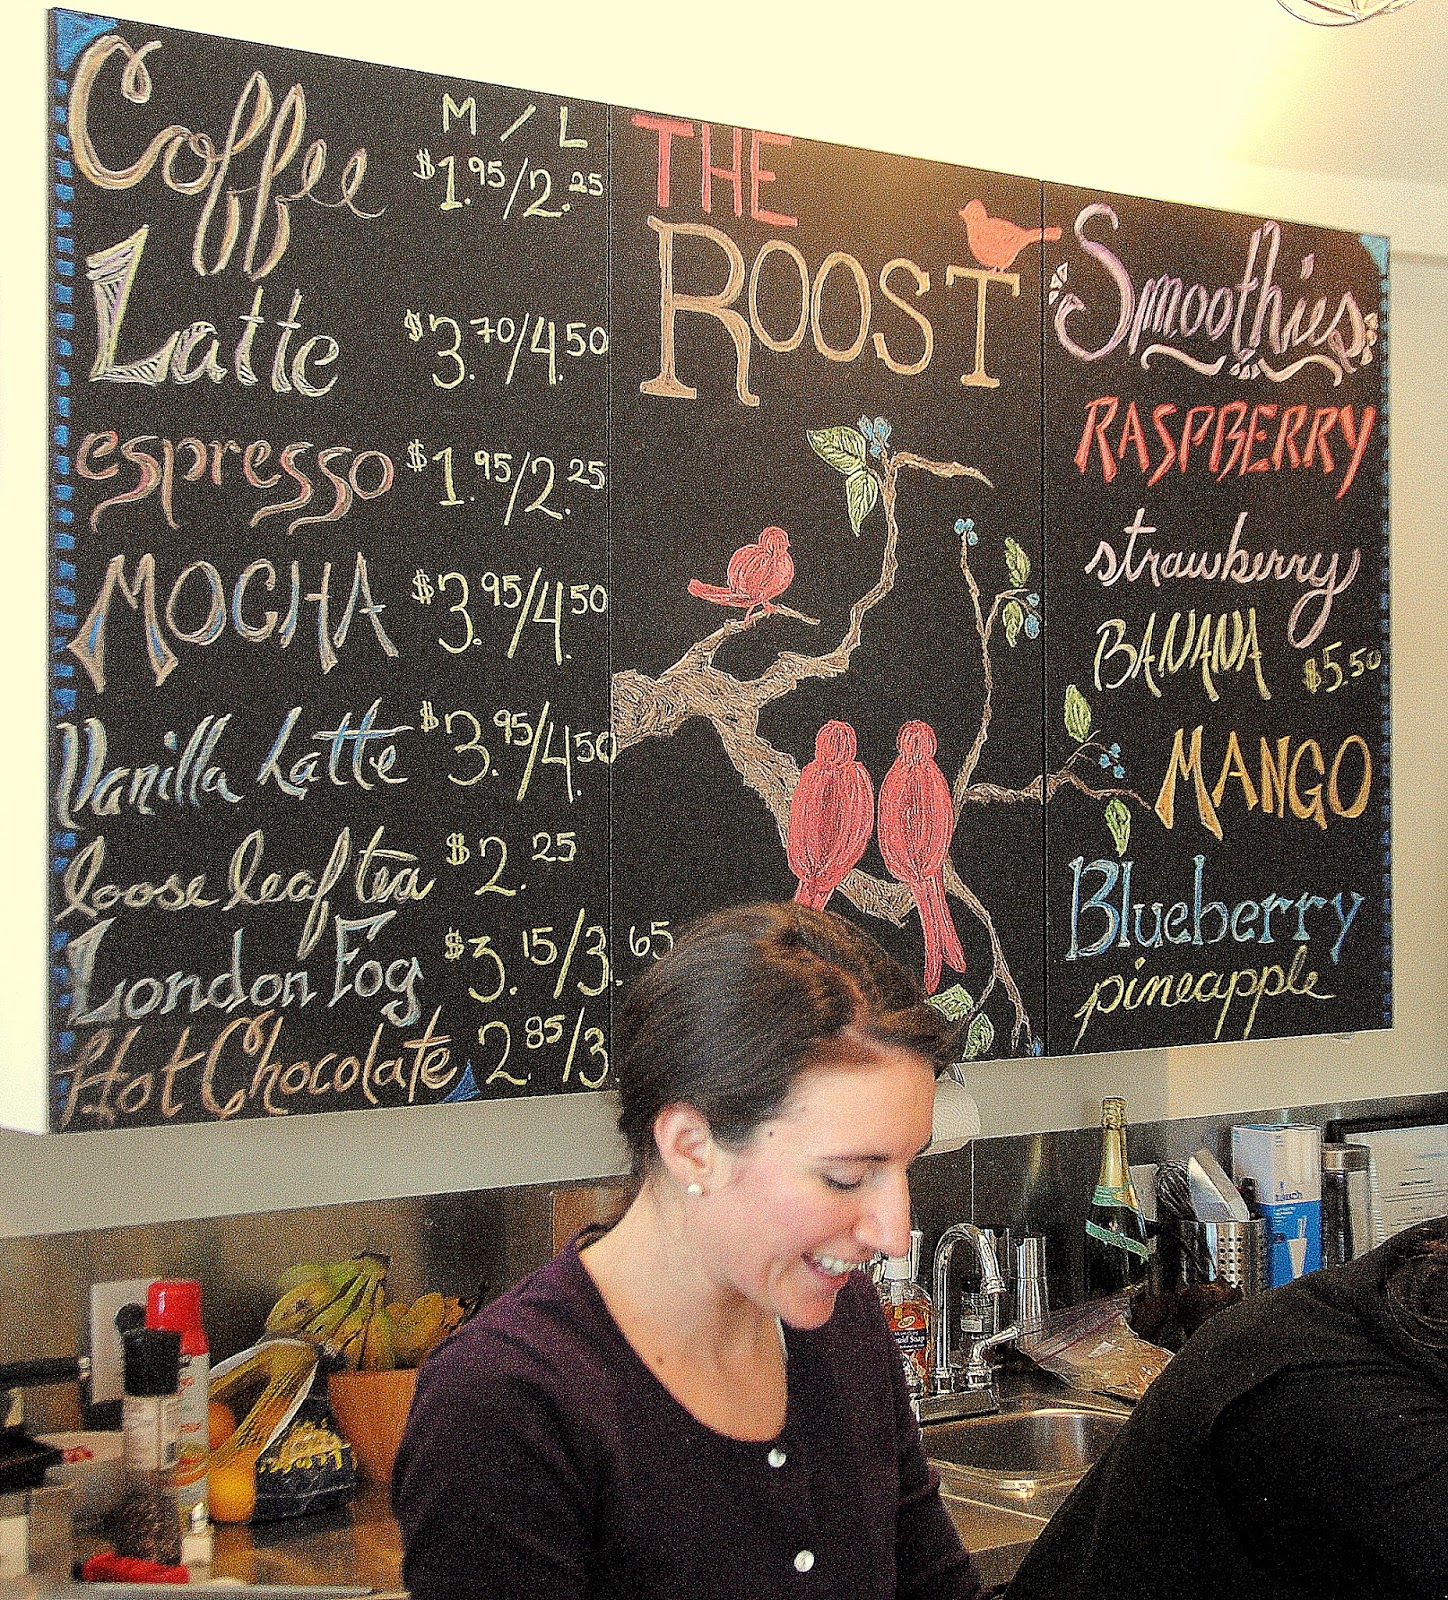 M / L
Coffee $1.95/2.25
Latte $3.70/4.50
espresso $1.95/2.25
MOCHA $3.95/4.50
Vanilla Latte $3.95/4.50
loose leaf tea $2.25
London Fog $3.15/3.65
Hot Chocolate 2.85/3.
THE
ROOST
Smoothies
RASPBERRY
strawberry
BANANA $5.50
MANGO
Blueberry
pineapple